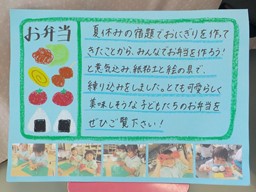 お弁当
夏休みの宿題でおにぎりを作って
きたことから、みんなでお弁当を作ろう!
と意気込み、紙粘土と絵の具で、
練り込みをしました。とても可愛らしく
美味しそうな子どもたちのお弁当を
ぜひご覧下さい!